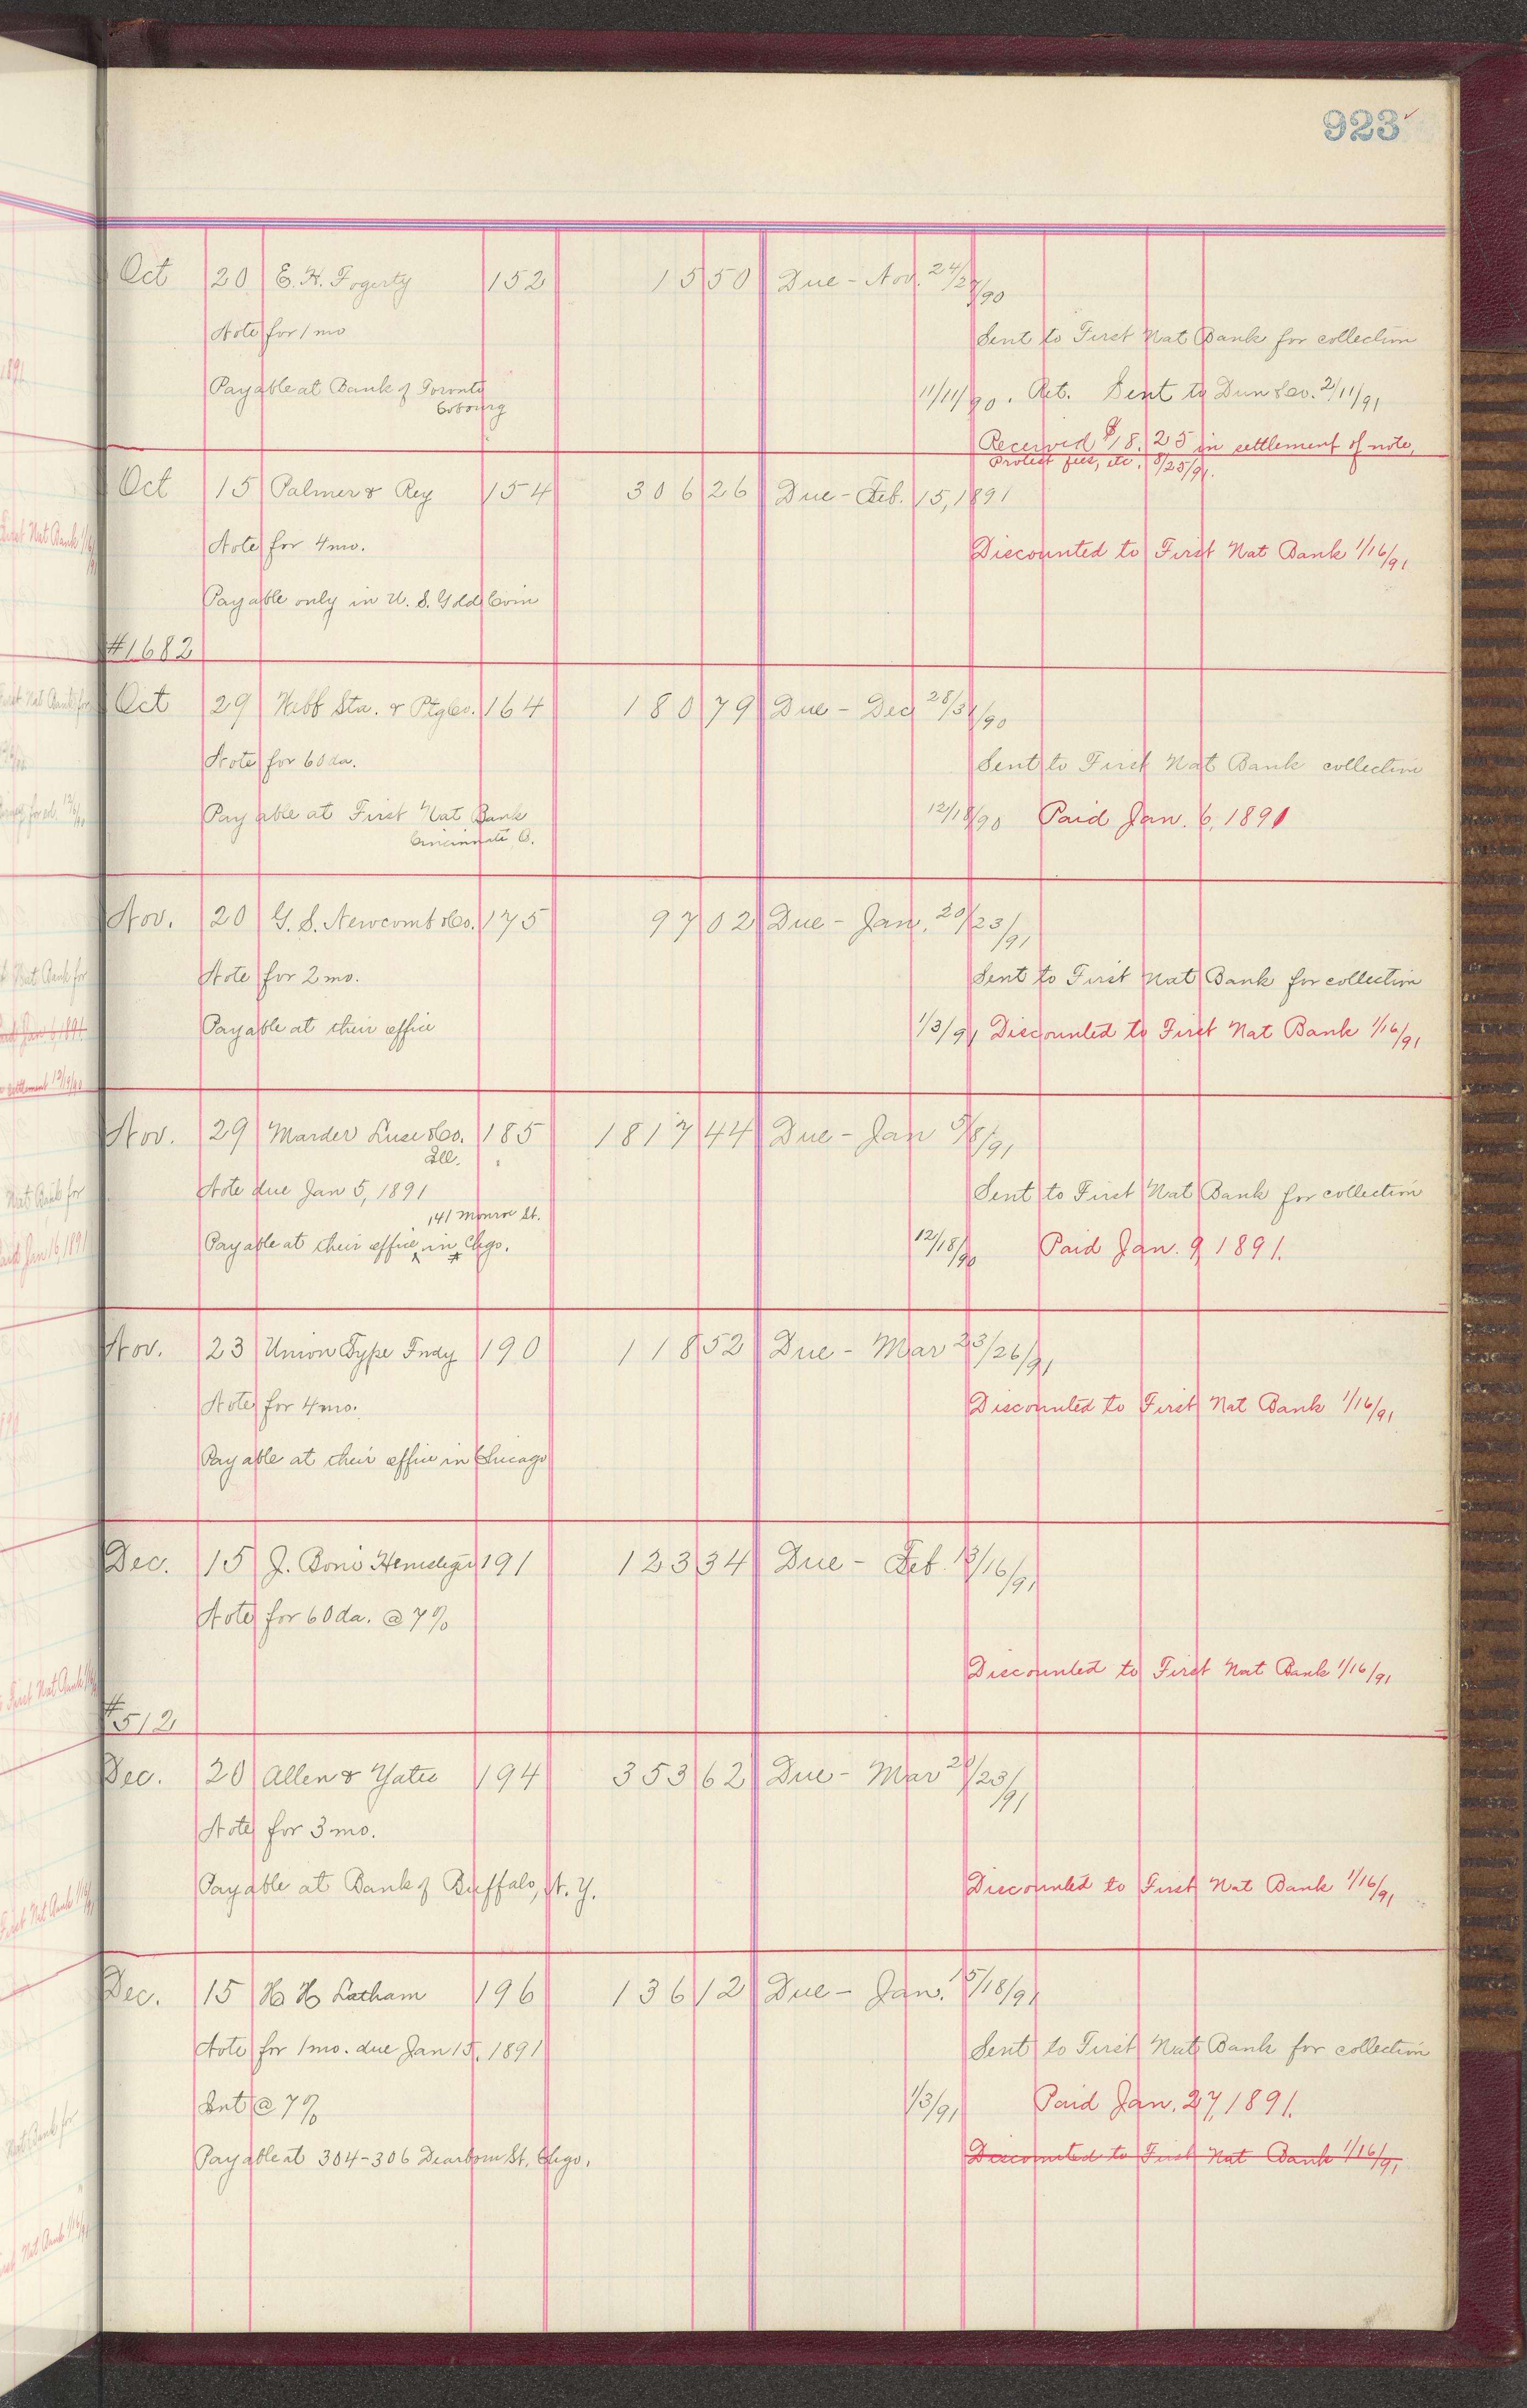 923
Oct 20 E. H. Fogerty 152 15 50 Due - Nov. 24/27/90
Note for 1 mo
Sent to First Nat Bank for collection
Payable at Bank of Toronto
Cobourg
11/11/90. Ret. Sent to Dun & Co. 2/11/91
Received $18.25 in settlement of note,
Protest fees, etc. 8/25/91.
Oct 15 Palmer & Rey 154 306 26 Due - Feb. 15, 1891
Note for 4 mo.
Discounted to First Nat Bank 1/16/91
Payable only in U. S. Gold Coin
#1682
Oct 29 Webb Sta. & Ptg Co. 164 180 79 Due - Dec 28/31/90
Note for 60 da.
Sent to First Nat Bank collection
Payable at First Nat Bank
Cincinnati O.
12/18/90 Paid Jan. 6, 1891
Nov. 20 G. S. Newcomb & Co. 175 97 02 Due - Jan. 20/23/91
Note for 2 mo.
Sent to First Nat Bank for collection
Payable at their office
1/3/91 Discounted to First Nat Bank 1/16/91
Nov. 29 Marder Luse & Co. 185 1817 44 Due - Jan 5/8/91
Ill.
Note due Jan 5, 1891
Sent to First Nat Bank for collection
141 Monroe St.
Payable at their office in Chgo.
12/18/90 Paid Jan. 9 1891.
Nov. 23 Union Type Fndy 190 118 52 Due - Mar 23/26/91
Note for 4 mo.
Discounted to First Nat Bank 1/16/91
Payable at their office in Chicago
Dec. 15 J. Boni 191 123 34 Due - Feb. 13/16/91
Note for 60 da. @ 7%
Discounted to First Nat Bank 1/16/91
#512
Dec. 20 Allen & Yates 194 353 62 Due - Mar 20/23/91
Note for 3 mo.
Payable at Bank of Buffalo, N. Y.
Discounted to First Nat Bank 1/16/91
Dec. 15 H H Latham 196 136 12 Due - Jan. 15/18/91
Note for 1 mo. due Jan 15, 1891
Sent to First Nat Bank for collection
Int @ 7%
1/3/91 Paid Jan. 27, 1891.
Payable at 304-306 Dearborn St. Chgo.
Discounted to First Nat Bank 1/16/91